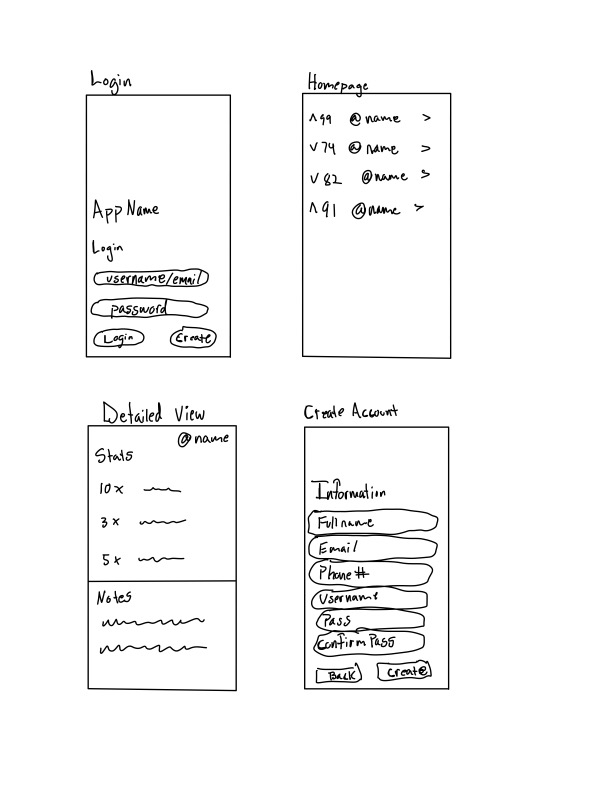 Login
App Name
Login
username/email
password
Login Create
Homepage
^ 99 @name >
v 74 @name >
v 82 @name >
^ 91 @name >
Detailed View
@name
Stats
10x
3x
5x
Notes
Create Account
Information
Full name
Email
Phone #
Username
Pass
Confirm Pass
Back Create